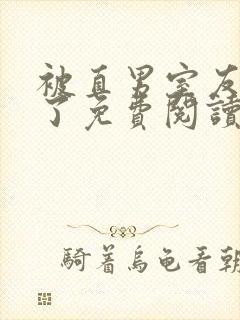 被直男室友
了免費閱讀
騎着烏龜看朝